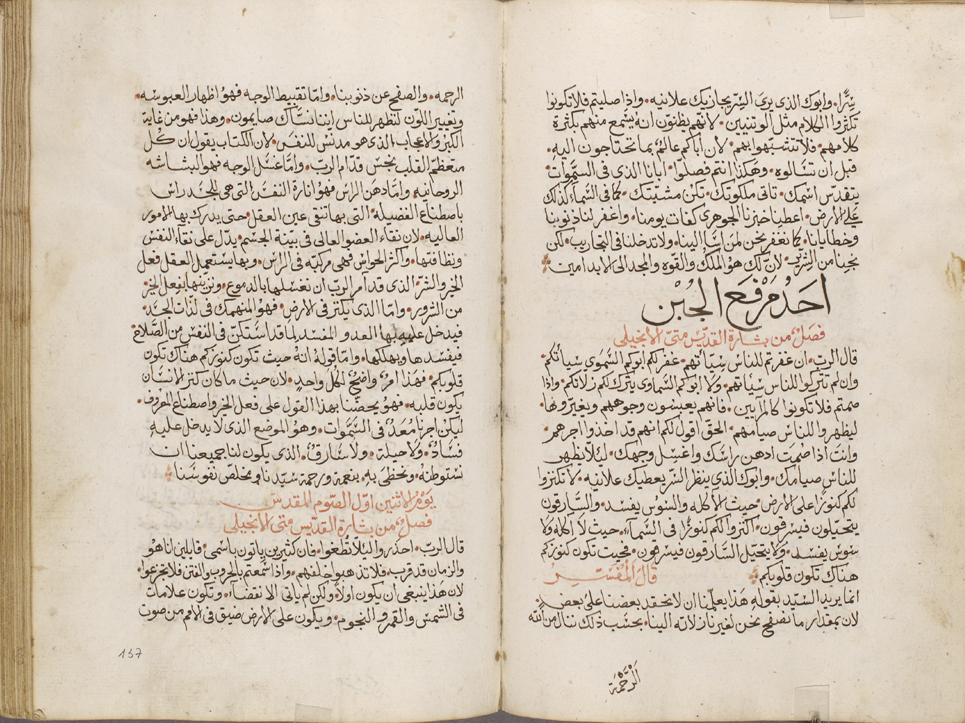 سِرًّا. وابوك الذى يرى السِّر يجازيك علانيه. واذا صليتم فلا تكونوا
تكثروا الكلام مثل الوتنيين. لانهم يظنون انه يسمع منهم بكثرة
كلامهم. فلا تتشبهوا بهم. لان اباكم عالم بما تحتاجون اليه.
قبل ان تسالوه. وهكذا انتم فصلوا. ابانا الذى فى السموات
يتقدس اسمك. تاتى ملكوتك. تكن مشيتك. كما فى السماء كذلك
على الارض. اعطنا خبزنا الجوهرى كفات يومنا. واغفر لنا ذنوبنا
وخطايانا. كما نغفر نحن لمن اسا الينا. ولا تدخلنا فى التجاريب. لكن
نجينا من الشرير. لان لك هو الملك والقوه والمجد الى الابد امين
احد مرفع الجبن
فصل من بشارة القديس متى الانجيلى
قال الرب. ان غفرتم للناس سياتهم. غفر لكم ابوكم السموى سياتكم.
وان لم تتركوا للناس سياتهم. ولا ابوكم السماوى يترك لكم زلاتكم. واذا
صمتم فلا تكونوا كالمرآيين. فانهم يعبسون وجوههم ويغيرونها.
ليظهروا للناس صيامهم. الحق اقول لكم انهم قد اخذوا اجرهم.
وانت اذا صمت ادهن راسك واغسل وجهك. ليلا يظهر
للناس صيامك. وابوك الذى ينظر السر يعطيك علانيه. لا تكنزوا
لكم كنوزًا على الارض. حيث الاكله والسوس يفسد. والسارقون
يتحيلون فيسرقون. اكنزوا لكم كنوزًا فى السماء. حيث لا اكله ولا
سوس يفسد. ولا يتحيل السارقون فيسرقون. فحيث تكون كنوزكم
هناك تكون قلوبكم قال المفسر
انما يريد السيد بقوله هذا يعلمنا ان لا نحقد بعضنا على بعض.
لان بمقدار ما نصفح نحن لغيرنا زلاته الينا. بحسب ذلك ننال من الله
الرحمة
الرحمه. والصفح عن ذنوبنا. واما تقبيط الوجه فهو اظهار العبوسه.
وتغيير اللون لتظهر للناس اننا نساك صايمون. وهذا فهو من غاية
الكبر والاعجاب الذى هو مدنس للنفس. لان الكتاب يقول ان كل
متعظم القلب نجس قدام الرب. واما غسل الوجه فهو البشاشه
الروحانيه. واما دهن الراس فهو انارة النفس التى هى للجسد راس
باصطناع الفضيله. التى بها تنقى عين العقل. حتى يدرك بها الامور
العاليه. لان نقاء العضو العالى فى بنية الجسم. يدل على نقاء النفس
ونظافتها. واكثر الحواس فهى مركبه فى الراس. وبها يستعمل العقل فعل
الخير والشر. الذى قد امر الرب ان نغسلها بالدموع. ونزينها بفعل الخير
من الشرور. واما الذى يكنز فى الارض. فهو المنهمك فى لذات الجسد.
فيدخل عليه بها العدو المفسد لما قد استكن فى النفس من الصلاح
فيفسدها ويهلكها. واما قوله انه حيث تكون كنوزكم هناك تكون
قلوبكم. فهذا امر واضح لكل واحد. لان حيث ما كان كنز الانسان
يكون قلبه. فهو يحضنا بهذا القول على فعل الخير واصطناع المعروف.
ليكن اجرنا معد فى السموات. وهو الموضع الذى لا يدخل عليه
فساد. ولا حيلة. ولا سارق. الذى يكون لنا جميعنا ان
نستوطنه. ونحظى به. بنعمة ورحمة سيدنا ومخلص نفوسنا
يوم الاثنين اول الصوم المقدس
فصل من بشارة القديس متى الانجيلى
قال الرب. احذروا لئلا تطغوا. فان كثيرين ياتون باسمى. قايلين انا هو
والزمان قد قرب. فلا تذهبوا خلفهم. واذا سمعتم بالحروب والفتن فلا تجزعوا
لان هذا ينبغى ان يكون اولا. ولكن لم ياتى الانقضاء. وتكون علامات
فى الشمس والقمر والنجوم. ويكون على الارض ضيق فى الامم من صوت
137